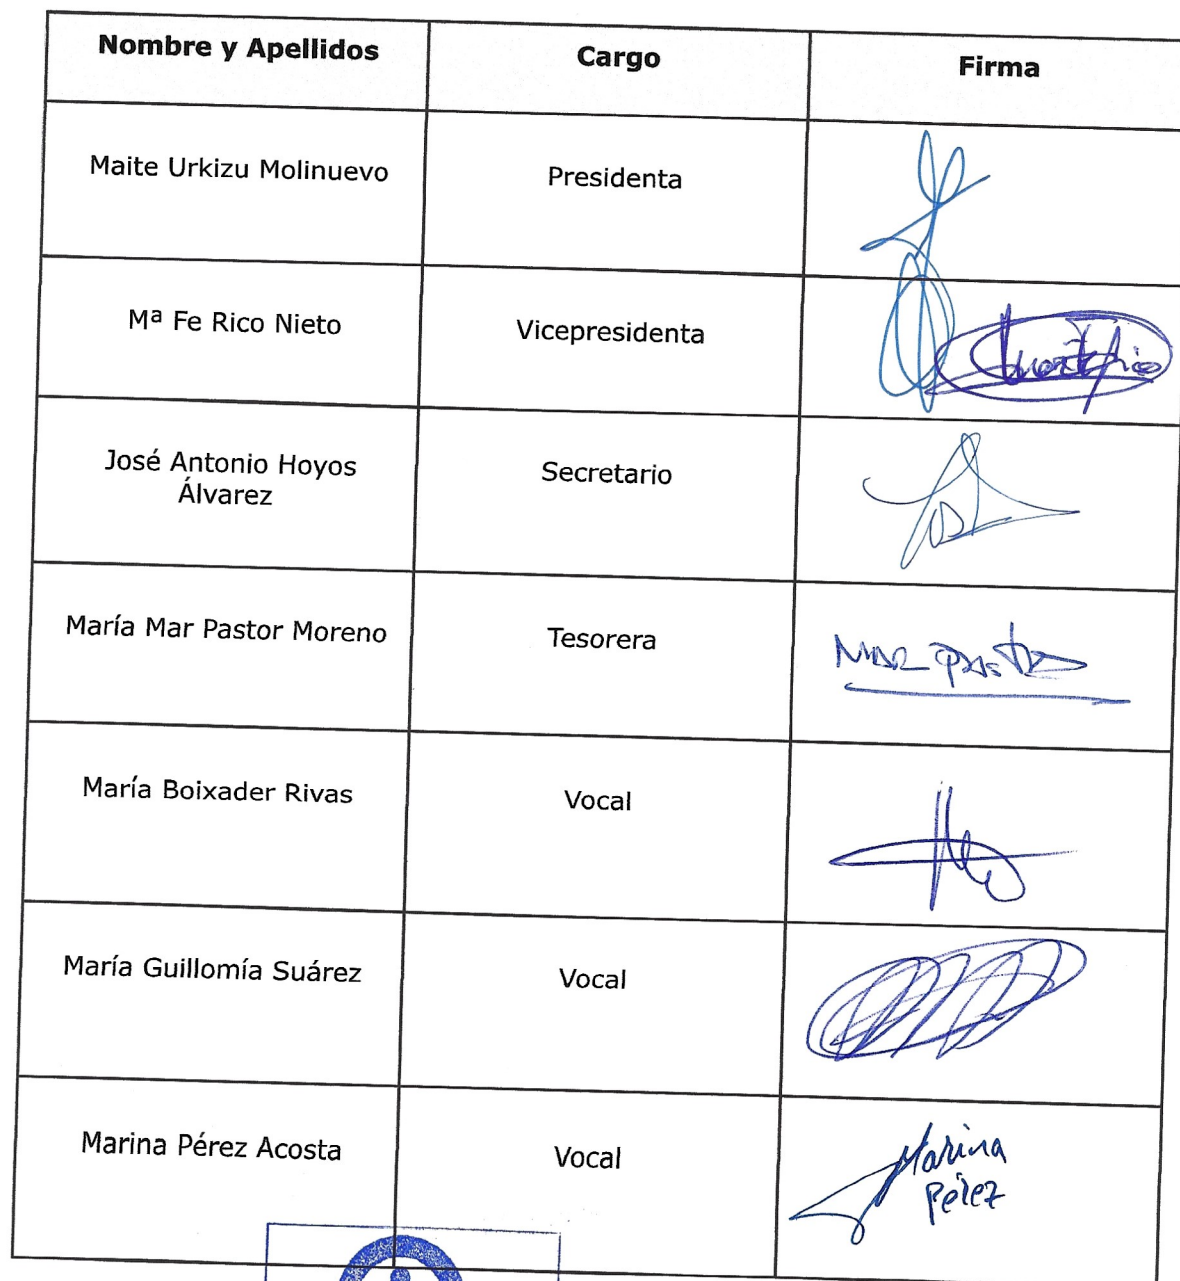 Nombre y Apellidos Cargo Firma
Maite Urkizu Molinuevo Presidenta
Mª Fe Rico Nieto Vicepresidenta
José Antonio Hoyos
Álvarez Secretario
María Mar Pastor Moreno Tesorera
Mar Pastor
María Boixader Rivas Vocal
María Guillomía Suárez Vocal
Marina Pérez Acosta Vocal
Marina
Pérez